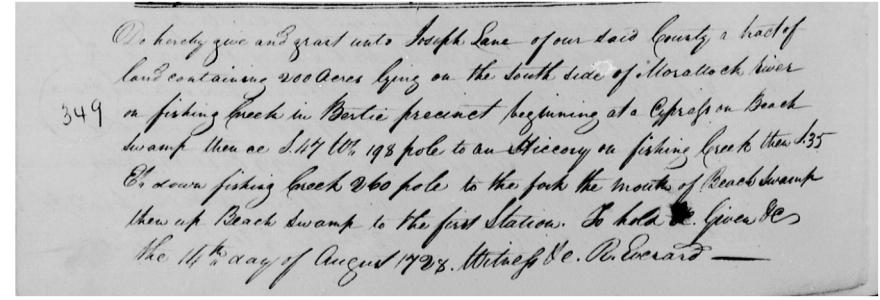 Do hereby give and grant unto Joseph Lane of our said County a tract of
land containing 200 Acres lying on the South side of Morattock river
349 on fishing Creek in Bertie precinct beginning at a Cypress on Beach
Swamp then ce S.47 Wt. 198 pole to an Hiccory on fishing Creek then S.35
Et. down fishing Creek 260 pole to the fork the mouth of Beach Swamp
then up Beach Swamp to the first Station. To hold &c. Given &c
the 14th day of August 1728. Witness &c. R. Everard —